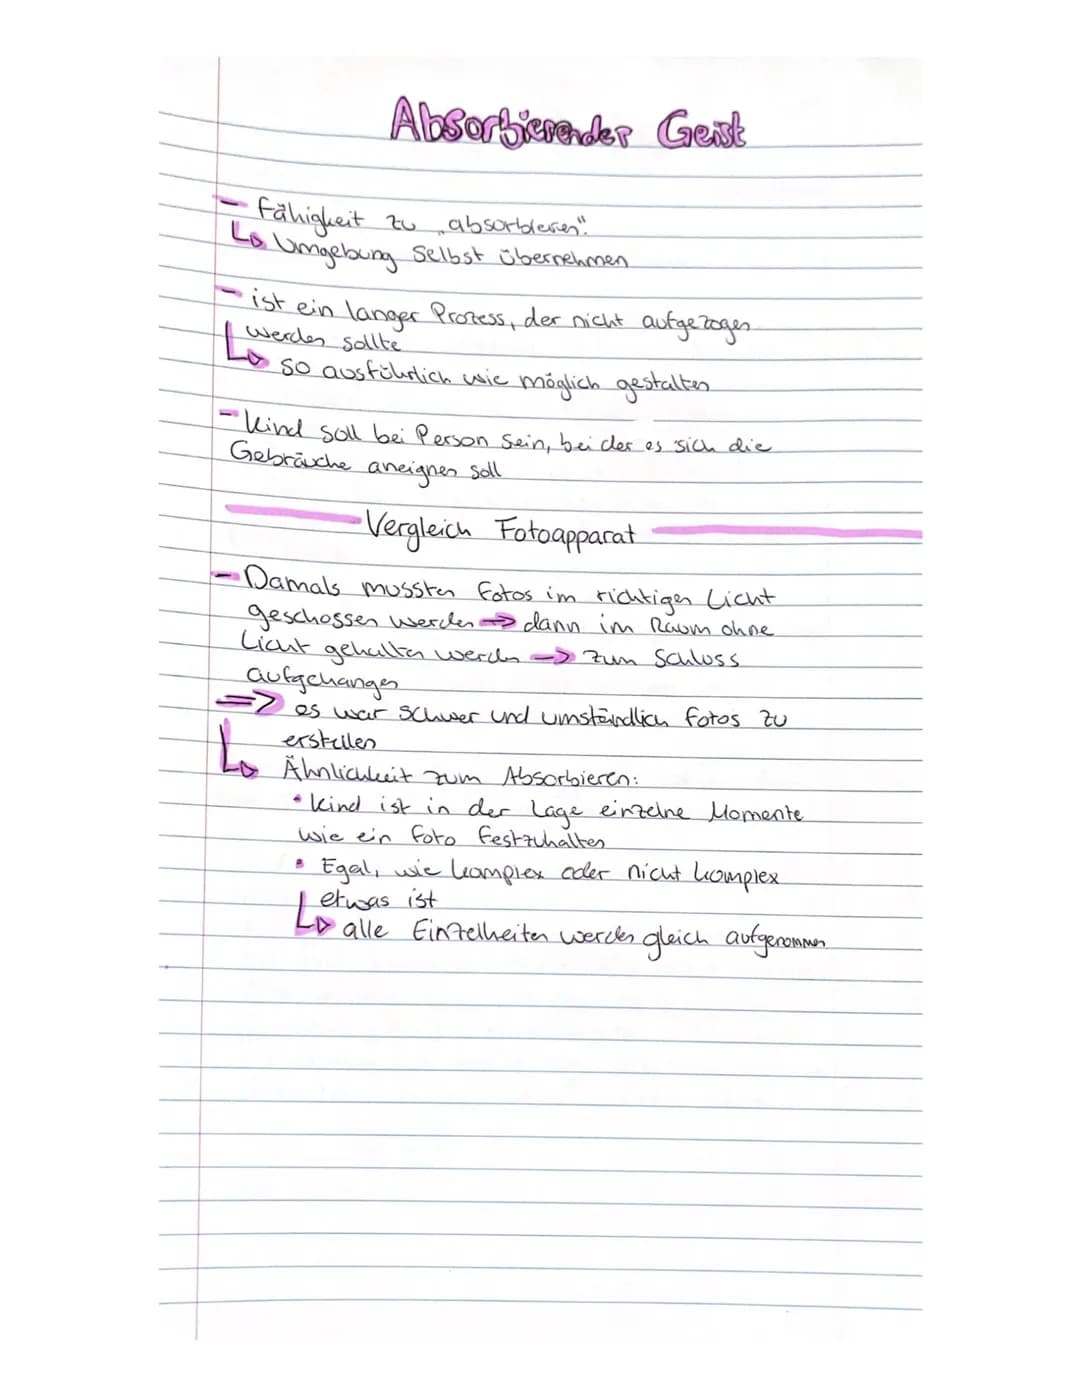 Absorbierender Geist
- Fähigkeit zu „absorbieren":
↳ Umgebung Selbst übernehmen
- ist ein langer Prozess, der nicht aufgezogen
werden sollte
↳ so ausführlich wie möglich gestalten
- Kind soll bei Person sein, bei der es sich die
Gebräuche aneignen soll
Vergleich Fotoapparat
- Damals mussten Fotos im richtigen Licht
geschossen werden → dann im Raum ohne
Licht gehalten werden → zum Schluss
aufgehangen
=> es war schwer und umständlich Fotos zu
erstellen
↳ Ähnlichkeit zum Absorbieren:
• Kind ist in der Lage einzelne Momente
wie ein Foto festzuhalten
• Egal, wie komplex oder nicht komplex
etwas ist
↳ alle Einzelheiten werden gleich aufgenommen